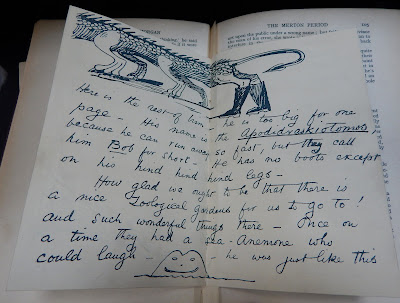 THE MERTON PERIOD
Here is the rest of him – he is too big for one
page – His name is the Apodidraskiotomos,
because he can run away so fast, but they call
him Bob for short – He has no boots except
on his hind hind hind legs –
How glad we ought to be that there is
a nice Zoological Gardens for us to go to!
and such wonderful things there – Once on
a time they had a sea-Anemone who
could laugh – he was just like this